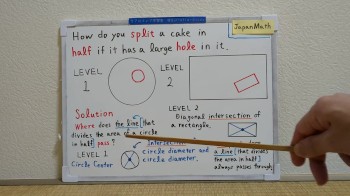 How do you split a cake in
half if it has a large hole in it.
JapanMath
LEVEL
1
LEVEL
2
Solution
Where does the line that
divides the area of a circle
in half pass?
LEVEL 1
Circle Center
Intersection
circle diameter and
circle diameter.
LEVEL 2
Diagonal intersection of
a rectangle.
a line that divides
the area in half
always passes through